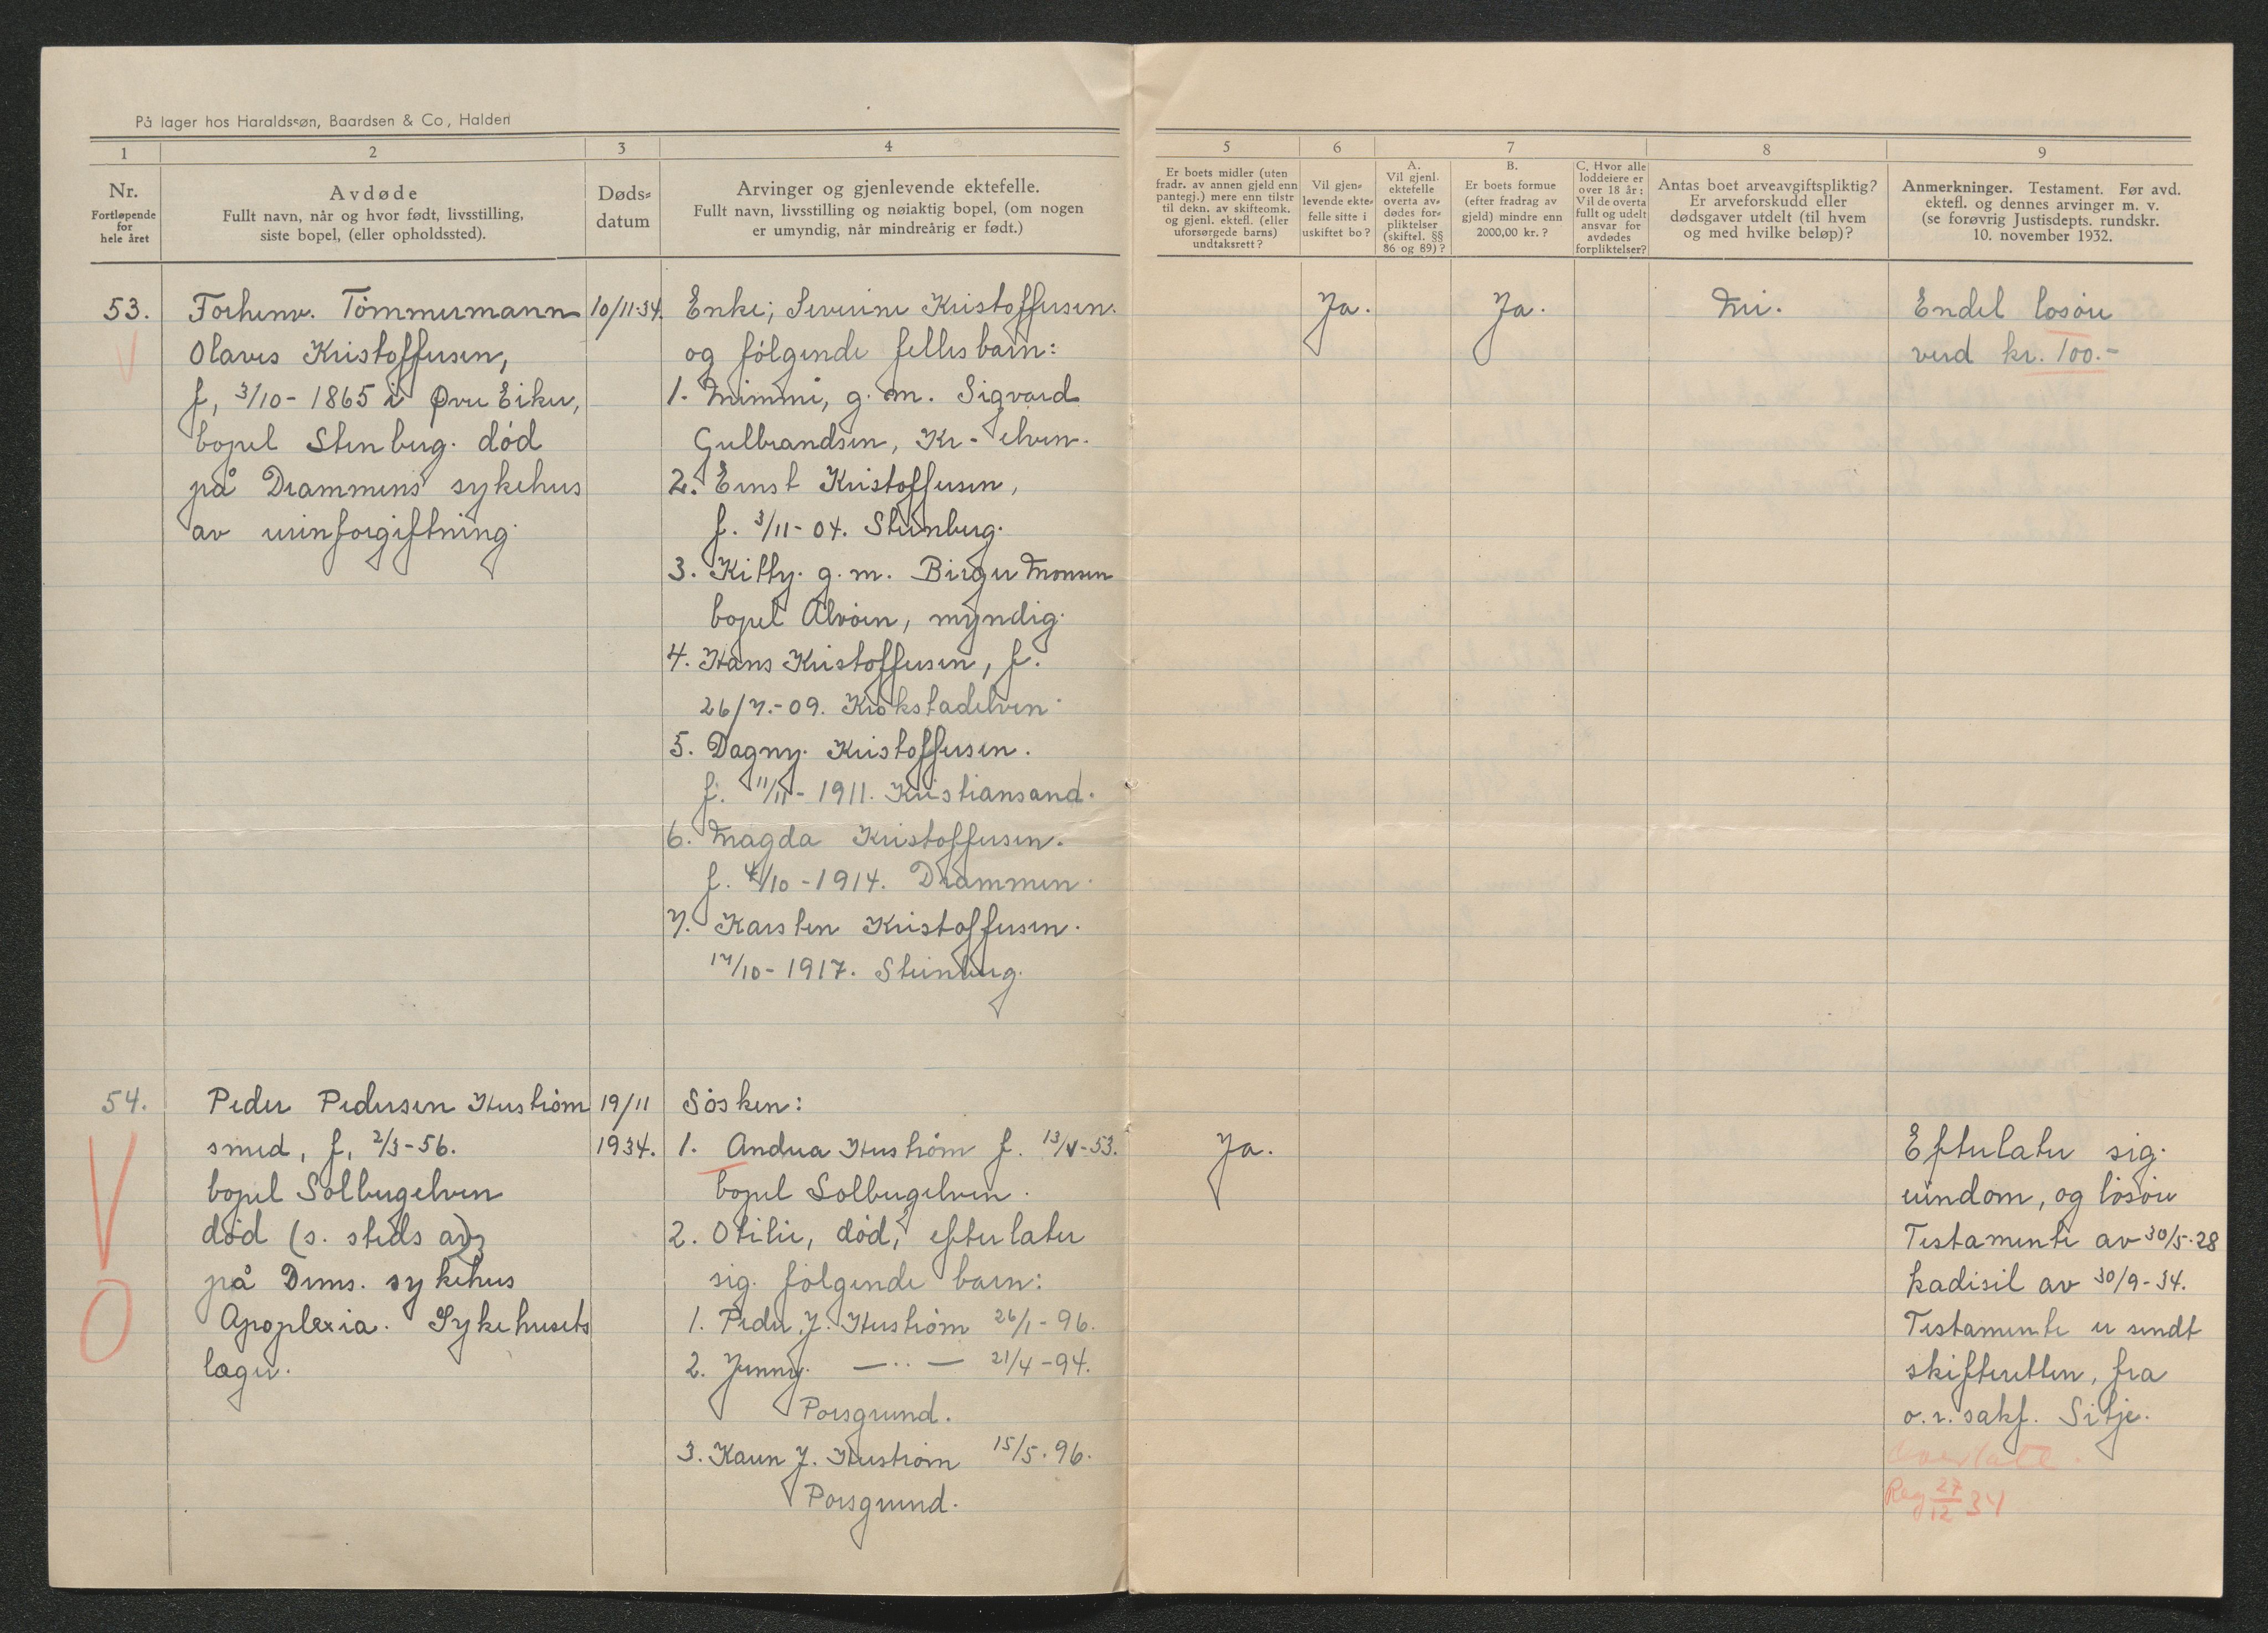 På lager hos Haraldssøn, Baardsen & Co, Halden
1
2
3
4
5
6
7
8
9
Nr.
Fortløpende
for
hele året
Avdøde
Fullt navn, når og hvor født, livsstilling,
siste bopel, (eller opholdssted).
Døds-
datum
Arvinger og gjenlevende ektefelle.
Fullt navn, livsstilling og nøiaktig bopel, (om nogen
er umyndig, når mindreårig er født.)
Er boets midler (uten
fradr. av annen gjeld enn
pantegj.) mere enn tilstr
til dekn. av skifteomk.
og gjenl. ektefl. (eller
uforsørgede barns)
undtaksrett?
Vil gjen-
levende ekte-
felle sitte i
uskiftet bo?
A.
Vil gjenl.
ektefelle
overta av-
dødes for-
pliktelser
(skiftel. §§
86 og 89)?
B.
Er boets formue
(efter fradrag av
gjeld) mindre enn
2000,00 kr.?
C. Hvor alle
loddeiere er
over 18 år:
Vil de overta
fullt og udelt
ansvar for
avdødes
forpliktelser?
Antas boet arveavgiftspliktig?
Er arveforskudd eller
dødsgaver utdelt (til hvem
og med hvilke beløp)?
Anmerkninger. Testament. Før avd.
ektefl. og dennes arvinger m. v.
(se forøvrig Justisdepts. rundskr.
10. november 1932.
53.
Forhenv. Tömmermann
Olaves Kristoffersen,
f, 3/10-1865 i Øvre Eiker,
bopel Stenberg. död
på Drammens sykehus
av urinforgiftning.
10/11-34.
Enke; Severine Kristoffersen.
og fölgende felles barn:
1. Mimmi, g. m. Sigvard
Gulbrandsen, Kr-elven.
2. Ernst Kristoffersen,
f. 3/11-04. Steinberg.
3. Kitty. g. m. Birger Monsen
bopel Alvöen, myndig.
4. Hans Kristoffersen, f.
26/7.-09. Krokstadelven.
5. Dagny. Kristoffersen.
f. 11/11-1911. Kristiansand.
6. Magda Kristoffersen.
f. 4/10-1914. Drammen.
7. Karsten Kristoffersen.
17/10-1917. Steinberg.
Ja.
Ja.
Nei.
Endel lösöre
verd kr. 100.-
54.
Peder Pedersen Herström
smed, f, 2/3-56.
bopel Solbergelven
död (s. steds av)
på Drms. sykehus
Apoplexia. Sykehusets
læger.
19/11
1934.
Sösken:
1. Andrea Herström f. 13/V-53.
bopel Solbergelven.
2. Otilie, död, efterlater
sig. fölgende barn:
1. Peder J. Herström 26/1-96.
2. Jenny. —··— 21/4-94.
Porsgrund.
3. Karen J. Herström 15/5.96.
Porsgrund.
Ja.
Efterlater sig.
eiendom, og lösöre
Testamente av 30/5.28
kadisil av 30/9-34.
Testamente er sendt
skifteretten, fra
o.r.sakf. Sitje.
Reg 27/12 34